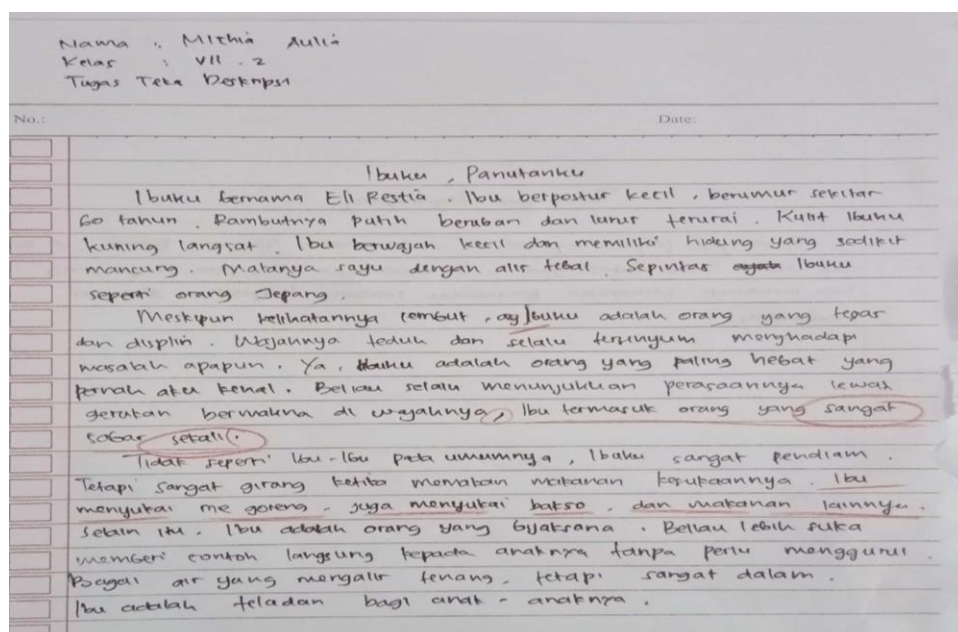 Nama : Mithia Aulia
Kelas : VII . 2
Tugas Teks Deskripsi
No.:
Date:
Ibuku , Panutanku
Ibuku bernama Eli Restia . Ibu berpostur kecil , berumur sekitar
60 tahun . Rambutnya putih beruban dan lurus terurai . Kulit Ibuku
kuning langsat . Ibu berwajah kecil dan memiliki hidung yang sedikit
mancung . Matanya sayu dengan alis tebal . Sepintas Ibuku
seperti orang Jepang .
Meskipun kelihatannya lembut , Ibuku adalah orang yang tegas
dan displin . Wajahnya teduh dan selalu tersenyum menghadapi
masalah apapun . Ya , Ibuku adalah orang yang paling hebat yang
pernah aku kenal . Beliau selalu menunjukkan perasaannya lewat
gerakan bermakna di wajahnya , Ibu termasuk orang yang sangat
sabar sekali .
Tidak seperti Ibu - Ibu pada umumnya , Ibuku sangat pendiam .
Tetapi sangat girang ketika memakan makanan kesukaannya . Ibu
menyukai me goreng , juga menyukai bakso , dan makanan lainnya .
Selain itu , Ibu adalah orang yang bijaksana . Beliau lebih suka
memberi contoh langsung kepada anaknya tanpa perlu menggurui .
Bagai air yang mengalir tenang , tetapi sangat dalam .
Ibu adalah teladan bagi anak - anaknya .